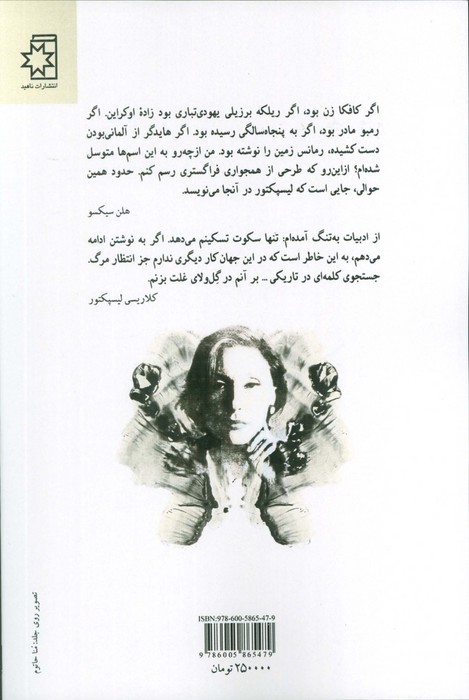 انتشارات ناهید
اگر کافکا زن بود، اگر ریلکه برزیلی یهودی‌تباری بود زادهٔ اوکراین. اگر
رمبو مادر بود، اگر به پنجاه‌سالگی رسیده بود. اگر هایدگر از آلمانی‌بودن
دست کشیده، رمانس زمین را نوشته بود. من ازچه‌رو به این اسم‌ها متوسل
شده‌ام؟ ازاین‌رو که طرحی از همجواری فراگستری رسم کنم. حدود همین
حوالی، جایی است که لیسپکتور در آنجا می‌نویسد.
هلن سیکسو
از ادبیات به‌تنگ آمده‌ام: تنها سکوت تسکینم می‌دهد. اگر به نوشتن ادامه
می‌دهم، به این خاطر است که در این جهان کار دیگری ندارم جز انتظار مرگ.
جستجوی کلمه‌ای در تاریکی ... بر آنم در گِل‌ولای غلت بزنم.
کلاریسی لیسپکتور
تصویر روی جلد: مُنا حاتوم
ISBN:978-600-5865-47-9
9 786005 865479
۲۵۰۰۰۰ تومان